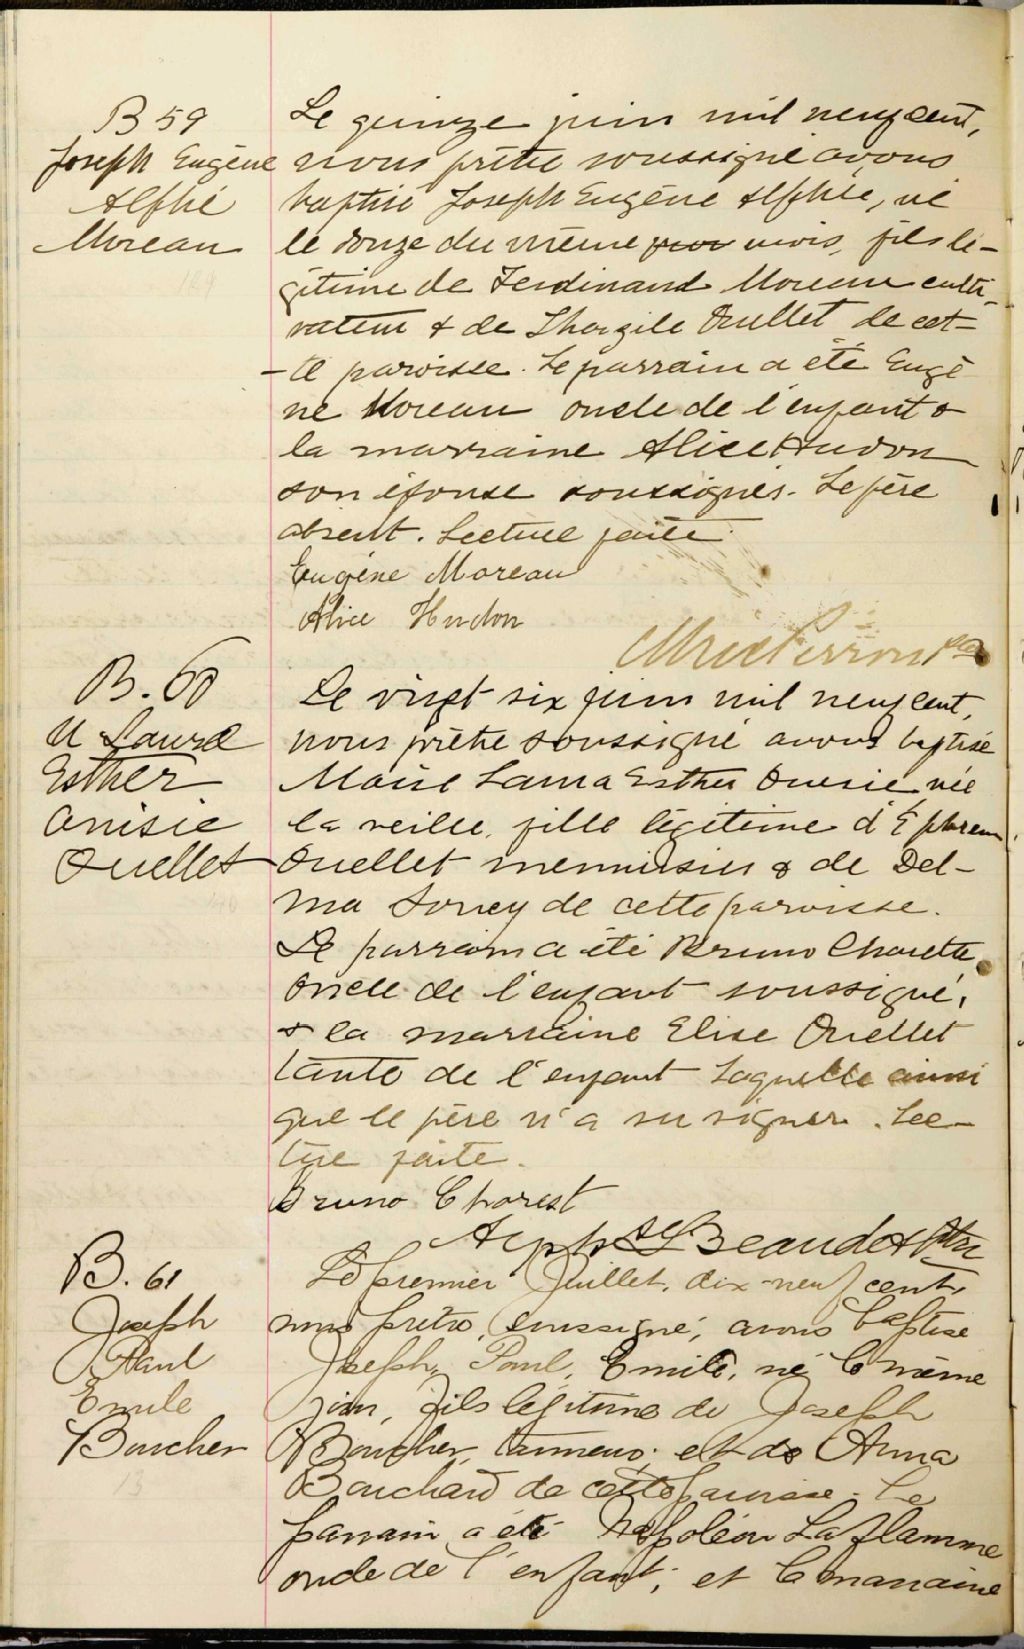 B 59
Joseph Eugène
Alphé
Moreau
Le quinze juin mil neuf cent,
nous prêtre soussigné avons
baptisé Joseph Eugène Alphée, né
le douze du même mois, fils lé-
gitime de Ferdinand Moreau culti-
vateur & de Thazile Ouellet de cet-
-te paroisse. Le parrain a été Eugè
ne Moreau oncle de l'enfant &
la marraine Alice Hudon
son épouse soussignés. Le père
absent. Lecture faite
Eugène Moreau
Alice Hudon
Perron ptre
B. 60
M Laura
Esther
Anisie
Ouellet
Le vingt six juin mil neuf cent,
nous prêtre soussigné avons baptisé
Marie Laura Esther née
la veille, fille légitime d'Ephrem
Ouellet menuisier & de Del-
ma Soucy de cette paroisse.
Le parrain a été Bruno Chorette
oncle de l'enfant soussigné,
& la marraine Elise Ouellet
tante de l'enfant laquelle ainsi
que le père n'a su signer. Lec-
ture faite.
Bruno Chorest
Alph Beaudet Ptre
B. 61
Joseph
Paul
Emile
Boucher
13
Le premier Juillet, dix-neuf cent,
nous prêtre, soussigné, avons baptisé
Joseph, Paul, Emile, né le même
jour, fils légitime de Joseph
Boucher, tanneur, et de Anna
Bouchard de cette paroisse. Le
parrain a été Napoléon Laflamme
oncle de l'enfant; et la marraine